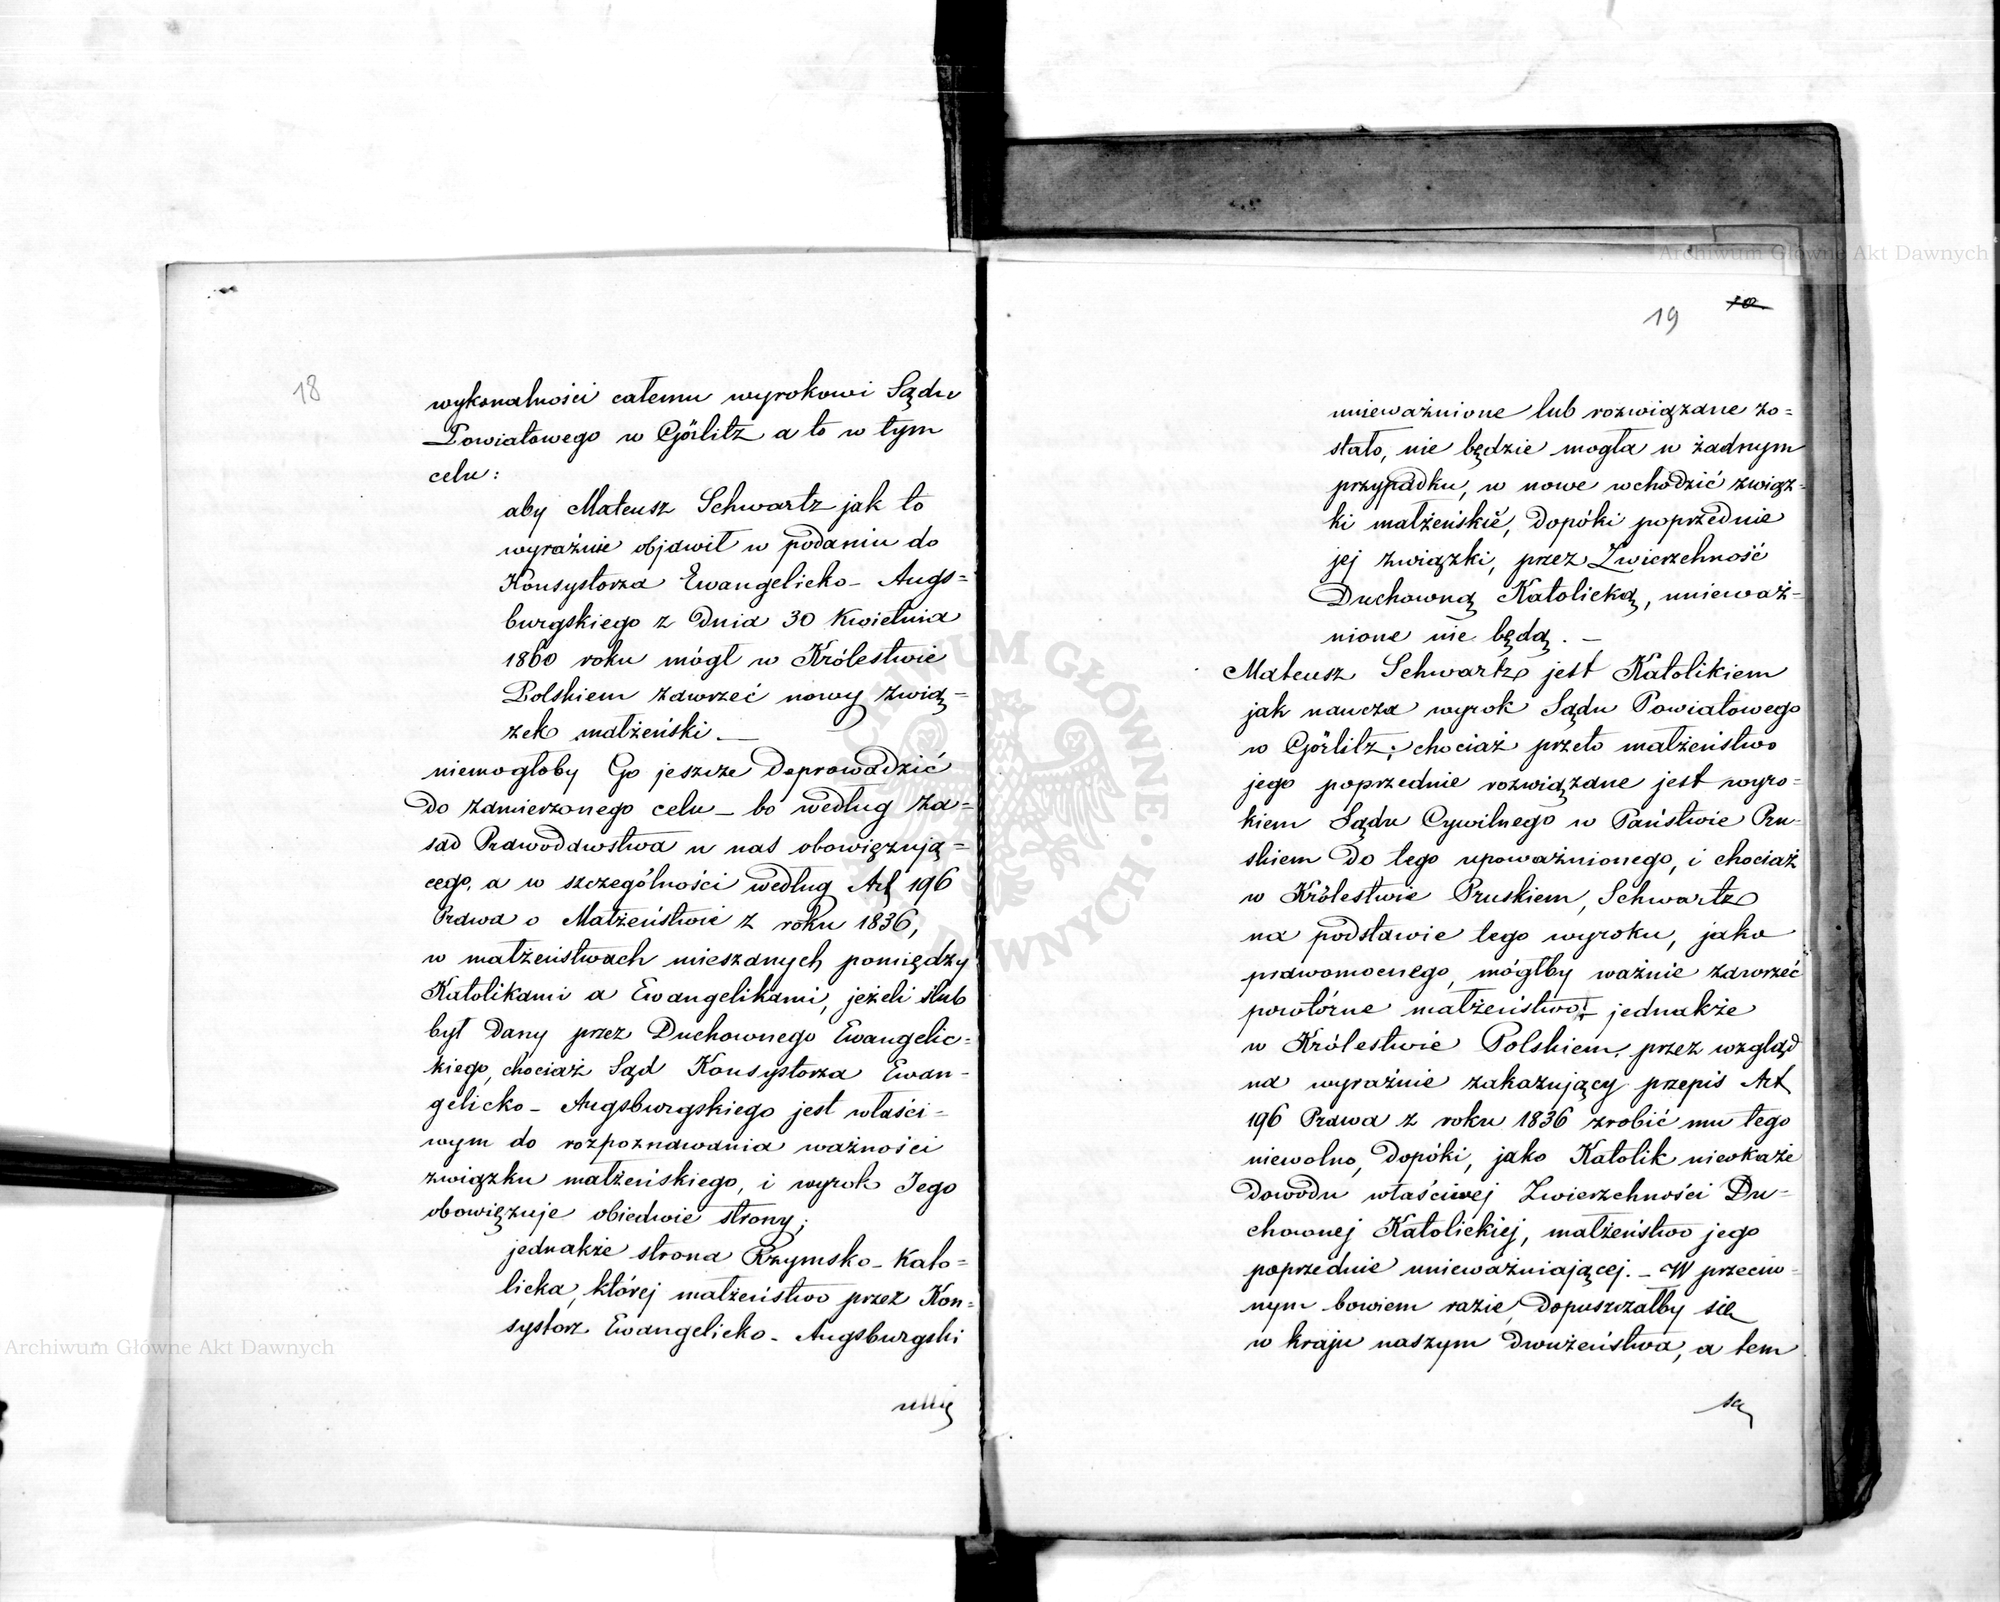 18
wykonalności całemu wyrokowi Sądu
Powiatowego w Görlitz a to w tym
celu:
aby Mateusz Schwartz jak to
wyraźnie objawił w podaniu do
Konsystorza Ewangelicko- Augs=
burgskiego z Dnia 30 Kwietnia
1860 roku mógł w Królestwie
Polskiem zawrzeć nowy zwią=
zek małżeński. —
niemogłoby Go jeszcze Doprowadzić
Do zamierzonego celu – bo według za=
sad Prawodawstwa u nas obowięzują=
cego, a w szczególności według Art 196
Prawa o Małżeństwie z roku 1836,
w małżeństwach mieszanych pomiędzy
Katolikami a Ewangelikami, jeżeli ślub
był Dany przez Duchownego Ewangelic=
kiego, chociaż Sąd Konsystorza Ewan-
gelicko- Augsburgskiego jest właści=
wym do rozpoznawania ważności
związku małżeńskiego, i wyrok Jego
obowięzuje obiedwie strony;
jednakże strona Rzymsko-Kato=
licka, której małżeństwo przez Kon=
systorz Ewangelicko- Augsburgski
unie
19 10
unieważnione lub rozwiązane zo=
stało, nie będzie mogła w żadnym
przypadku, w nowe wchodzić związ=
ki małżeńskié, Dopóki poprzednie
jej związki, przez Zwierzchność
Duchowną Katolicką, unieważ-
nione nie będą. —
Mateusz Schwartz jest Katolikiem
jak naucza wyrok Sądu Powiatowego
w Görlitz; chociaż przeto małżeństwo
jego poprzednie rozwiązane jest wyro-
kiem Sądu Cywilnego w Państwie Pru-
skiem Do tego upoważnionego, i chociaż
w Królestwie Pruskiem, Schwartz
na podstawie tego wyroku, jako
prawomocnego, mógłby ważnie zawrzeć
powtórne małżeństwo: jednakże
w Królestwie Polskiem, przez wzgląd
na wyraźnie zakazujący przepis Art
196 Prawa z roku 1836 zrobić mu tego
niewolno, Dopóki, jako Katolik niewkaże
Dowodu właściwej Zwierzchności Du-
chownej Katolickiej, małżeństwo jego
poprzednie unieważniającej. – W przeciw-
nym bowiem razie, Dopuszczałby się
w kraju naszym Dwużeństwa, a tem
sa
Archiwum Główne Akt Dawnych
Archiwum Główne Akt Dawnych
ARCHIWUM GŁÓWNE AKT DAWNYCH